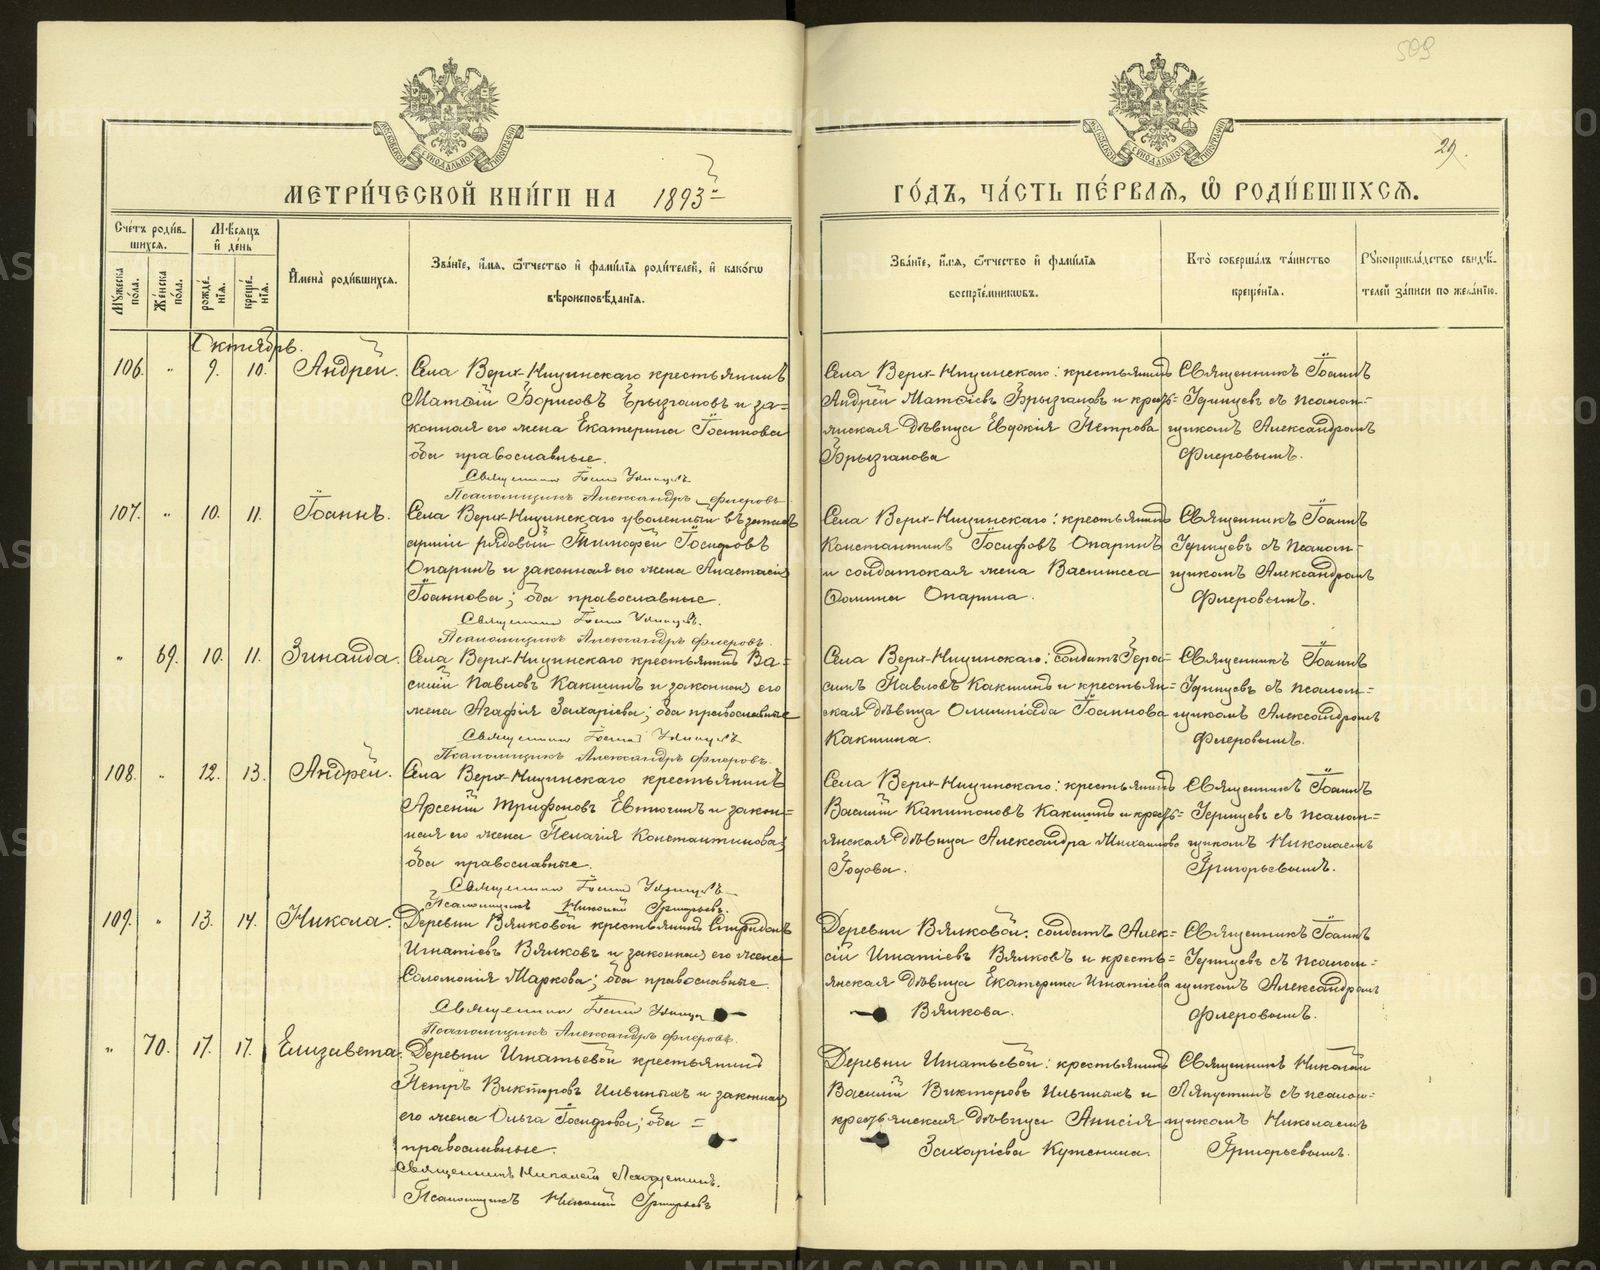 509
29.
МЕТРИ́ЧЕСКОЙ КНИ́ГИ НА 1893
ГО́ДЪ, ЧА́СТЬ ПЕ́РВАЯ, Ѿ РОДИ́ВШИХСЯ.
Сче́тъ роди́в-
шихся.
Мѣ́сяцъ
и҆ де́нь
Мꙋ́жеска по́ла.
Же́нска по́ла.
рожде́-
нія.
креще́-
нія.
И҆мена̀ роди́вшихся.
Зва́ніе, и҆́мя, ѻ҆́тчество и҆ фами́лія роди́телей, и҆ како́гѡ
вѣроисповѣ́данія.
Зва́ніе, и҆́мя, ѻ҆́тчество и҆ фами́лія
воспріе́мникѡвъ.
Кто̀ соверша́лъ та́инство
креще́нія.
Рꙋкоприкла́дство свидѣ́-
телей за́писи по жела́нію.
Октябрь.
106. " 9. 10. Андрей.
Села Верх-Ницинскаго крестьянинъ
Матѳій Борисовъ Брызгаловъ и за=
конная его жена Екатерина Іоаннова
оба православные.
Священникъ Іоаннъ Удинцевъ
Псаломщикъ Александръ Флеровъ
Села Верх-Ницинскаго: крестьянинъ
Андрей Матѳіевъ Брызгаловъ и кресть=
янская дѣвица Евдокія Петрова
Брызгалова
Священникъ Іоаннъ
Удинцевъ съ псалом=
щикомъ Александромъ
Флеровымъ.
107. " 10. 11. Іоаннъ.
Села Верх-Ницинскаго уволенный въ запасъ
арміи рядовый Тимофей Іосифовъ
Опаринъ и законная его жена Анастасія
Іоаннова; оба православные.
Священникъ Іоаннъ Удинцевъ.
Псаломщикъ Александръ Флеровъ.
Села Верх-Ницинскаго: крестьянинъ
Константинъ Іосифовъ Опаринъ
и солдатская жена Васлисса
Ѳомина Опарина.
Священникъ Іоаннъ
Удинцевъ съ псалом=
щикомъ Александромъ
Флеровымъ.
" 69. 10. 11. Зинаида.
Села Верх-Ницинскаго крестьянинъ Ва=
силій Павловъ Какшинъ и законная его
жена Агафія Захаріева; оба православные
Священникъ Іоаннъ Удинцевъ
Псаломщикъ Александръ Флеровъ.
Села Верх-Ницинскаго: солдатъ Гера=
симъ Павловъ Какшинъ и крестьян=
ская дѣвица Олимпіада Іоаннова
Какшина.
Священникъ Іоаннъ
Удинцевъ съ псалом=
щикомъ Александромъ
Флеровымъ.
108. " 12. 13. Андрей.
Села Верх-Ницинскаго крестьянинъ
Арсеній Трифоновъ Евтюгинъ и закон=
ная его жена Пелагія Константинова;
оба православные.
Священникъ Іоаннъ Удинцевъ
Псаломщикъ Николай Григорьевъ.
Села Верх-Ницинскаго: крестьянинъ
Василій Капитоновъ Какшинъ и кресть=
янская дѣвица Александра Михаилова
Годова.
Священникъ Іоаннъ
Удинцевъ съ псалом=
щикомъ Николаемъ
Григорьевымъ.
109. " 13. 14. Никола.
Деревни Вялковой крестьянинъ Спиридонъ
Игнатіевъ Вялковъ и законная его жена
Соломонія Маркова; оба православные.
Священникъ Іоаннъ Удинцевъ
Псаломщикъ Александръ Флеровъ.
Деревни Вялковой: солдатъ Алек=
сій Игнатіевъ Вялковъ и кресть=
янская дѣвица Екатерина Игнатіева
Вялкова.
Священникъ Іоаннъ
Удинцевъ съ псалом=
щикомъ Александромъ
Флеровымъ.
" 70. 17. 17. Елизавета.
Деревни Игнатьевой крестьянинъ
Петръ Викторовъ Ильиныхъ и законная
его жена Ольга Іосифова; оба =
православные.
Священникъ Николай Ляпустинъ.
Псаломщикъ Николай Григорьевъ
Деревни Игнатьевой: крестьянинъ
Василій Викторовъ Ильиныхъ и
крестьянская дѣвица Анисія
Захаріева Кутенина.
Священникъ Николай
Ляпустинъ съ псалом=
щикомъ Николаемъ
Григорьевымъ.